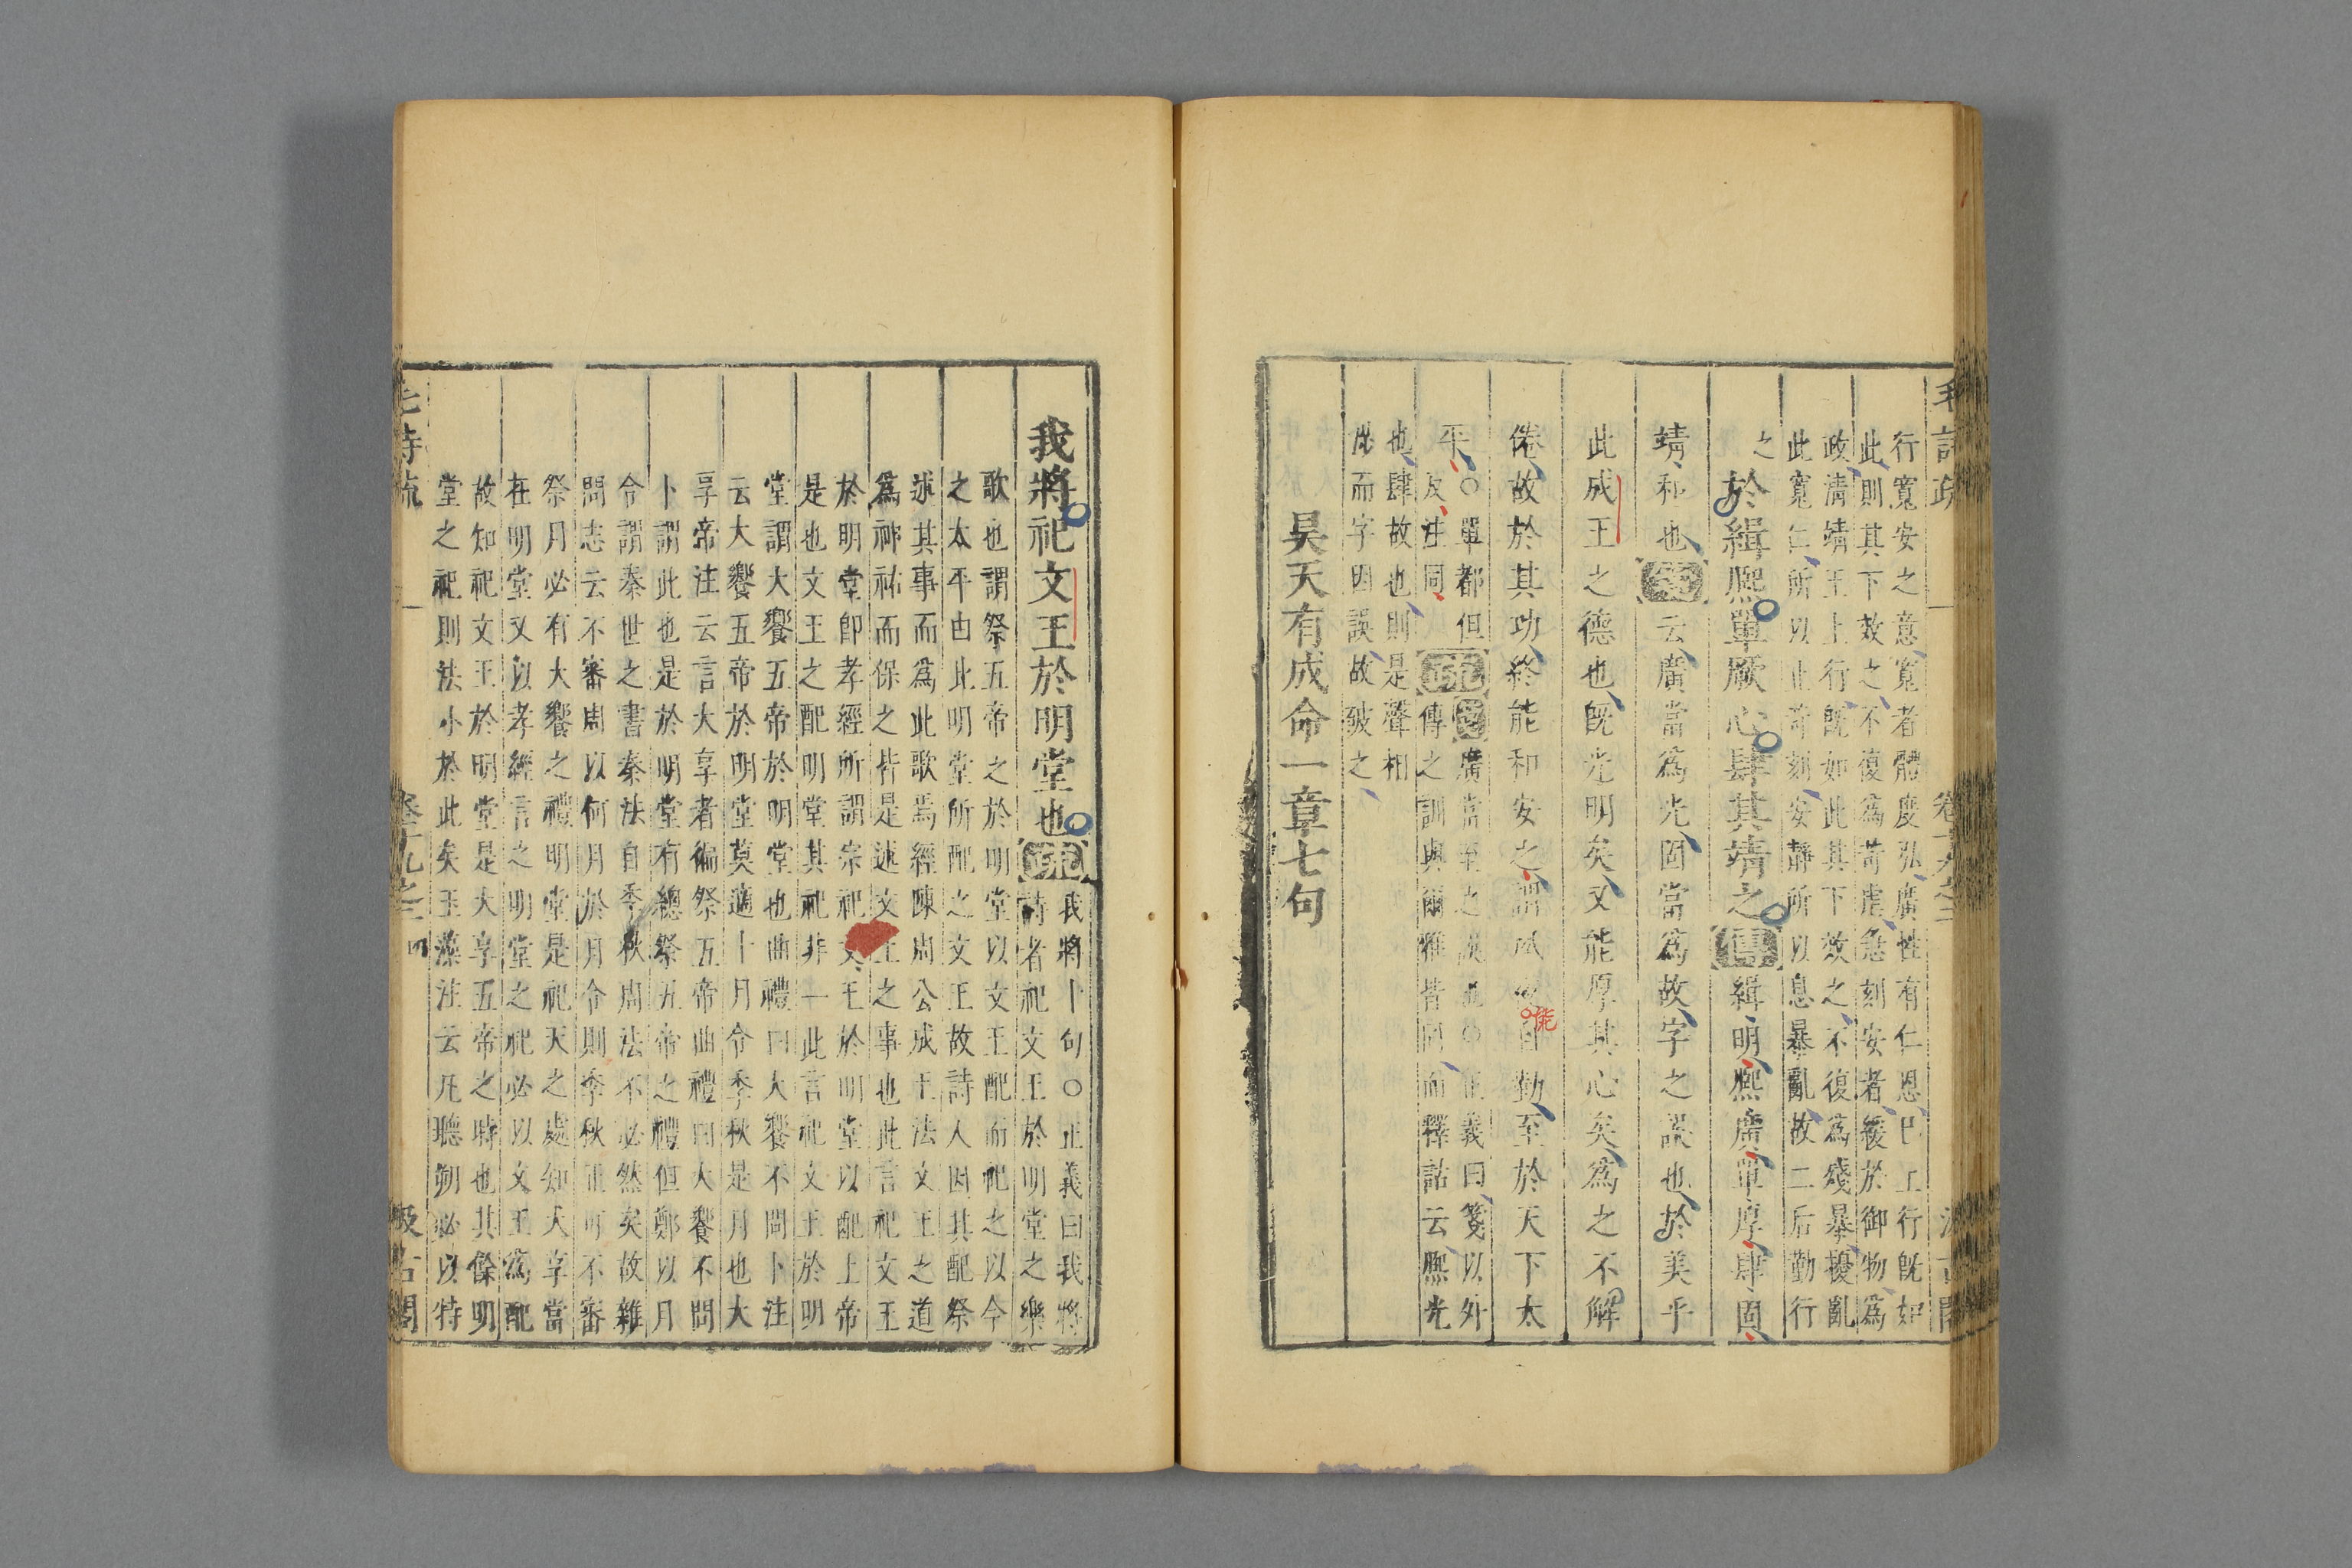 行寬安之意寬者體度弘廣性有仁恩巳上行旣如
此則其下效之不復爲苛虐急刻安者緩於御物爲
政清靖王上行旣如此其下效之不復爲殘暴擾亂
此寬仁所以止苛刻安靜所以息暴亂故二后勤行
之
於緝熙單厥心肆其靖之傳緝明熙廣單厚肆固
靖和也箋云廣當爲光固當爲故字之誤也於美乎
此成王之德也旣光明矣又能厚其心矣爲之不解
倦故於其功終能和安之謂夙夜自勤至於天下太
能
平○單都但
反注同
疏箋廣當至之誤也○正義曰箋以外
傳之訓與爾雅皆同而釋詁云熙光
也肆故也則是聲相
似而字因誤故破之
昊天有成命一章七句
我將祀文王於明堂也疏
我將十句○正義曰我將
詩者祀文王於明堂之樂
歌也謂祭五帝之於明堂以文王配而祀之以今
之太平由此明堂所配之文王故詩人因其配祭
述其事而爲此歌焉經陳周公成王法文王之道
爲神祐而保之皆是述文王之事也此言祀文王
於明堂卽孝經所謂宗祀文王於明堂以配上帝
是也文王之配明堂其祀非一此言祀文王於明
堂謂大饗五帝於明堂也曲禮曰大饗不問卜注
云大饗五帝於明堂莫適卜月令季秋是月也大
享帝注云言大享者徧祭五帝曲禮曰大饗不問
卜謂此也是於明堂有總祭五帝之禮但鄭以月
令謂秦世之書秦法自季秋周法不必然矣故雜
問志云不審周以何月於月令則季秋正可不審
祭月必有大饗之禮明堂是祀天之處知大享當
在明堂又以孝經言之明堂之祀必以文王爲配
故知祀文王於明堂是大享五帝之時也其餘明
堂之祀則法小於此矣玉藻注云凡聽朔必以特
卷十九之二
四
汲古閣